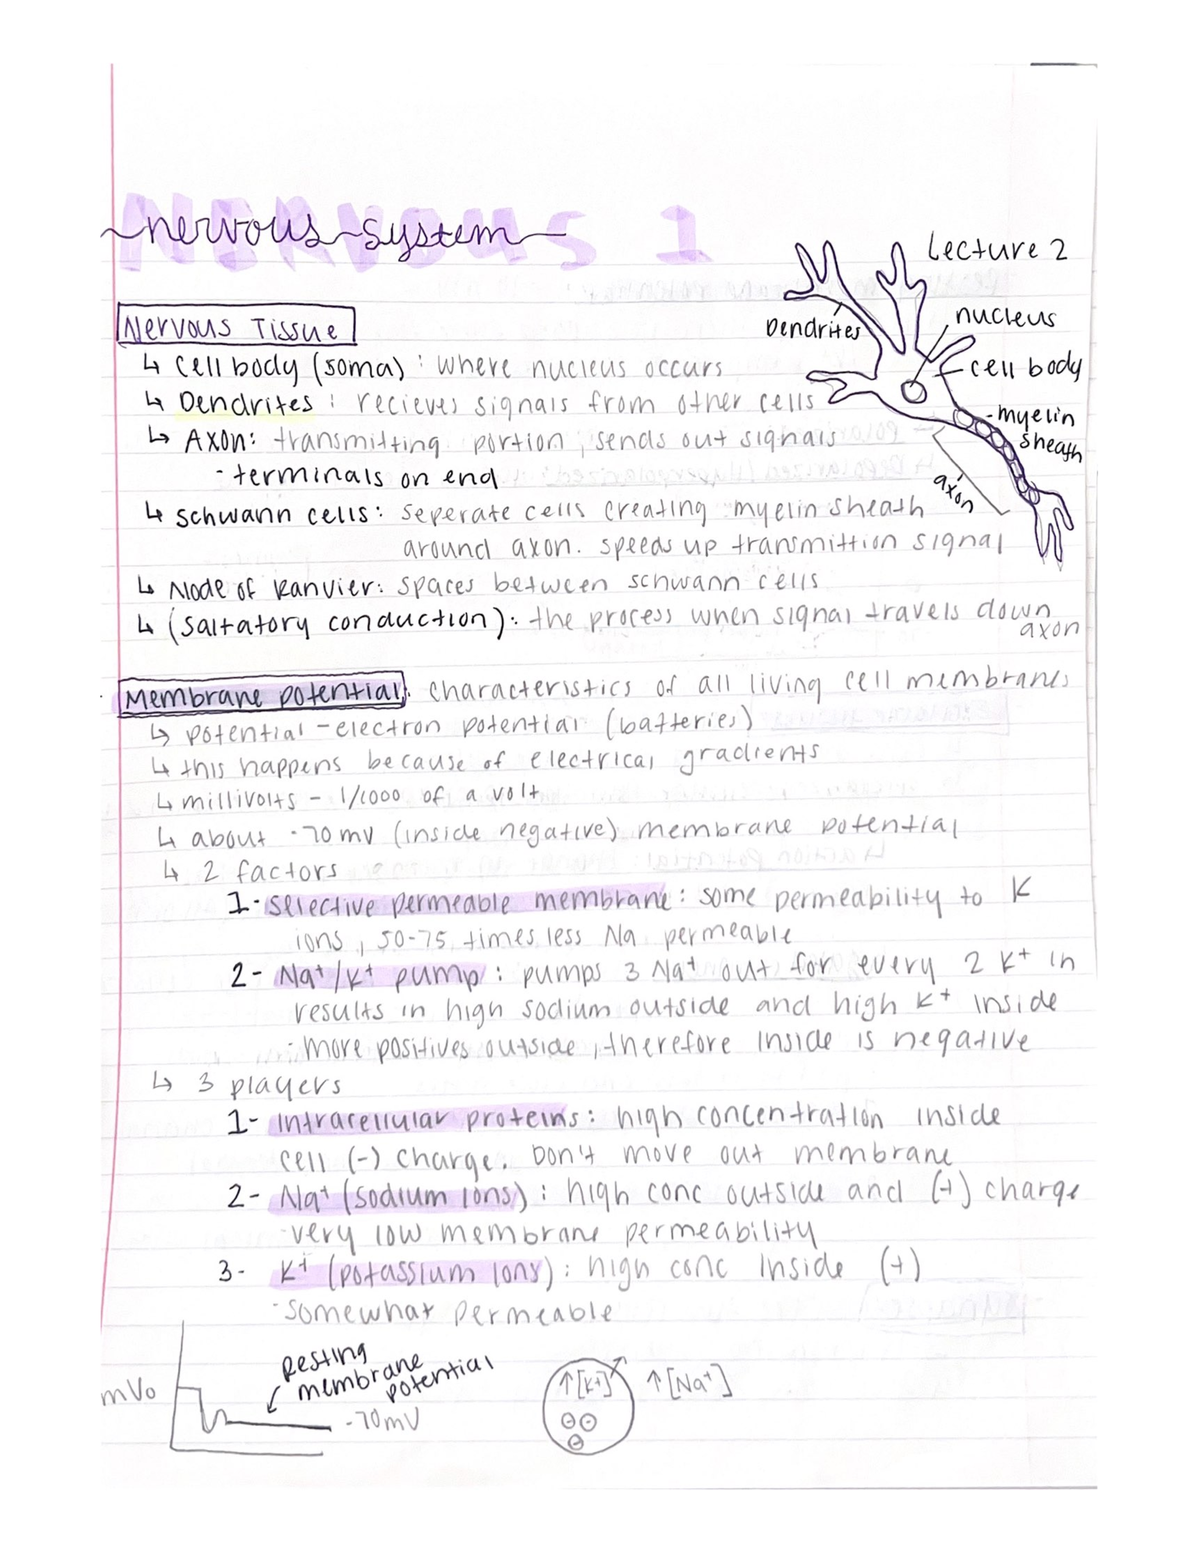 NERVOUS 1
nervous system
Lecture 2
Dendrites
nucleus
cell body
myelin
sheath
axon
Nervous Tissue
↳ Cell body (soma): where nucleus occurs
↳ Dendrites: recieves signals from other cells
↳ Axon: transmitting portion, sends out signals
- terminals on end
↳ schwann cells: seperate cells creating myelin sheath
around axon. speeds up transmittion signal
↳ Node of Ranvier: spaces between schwann cells
↳ (saltatory conduction): the process when signal travels down
axon
Membrane potential: characteristics of all living cell membranes
↳ potential - electron potential (batteries)
↳ this happens because of electrical gradients
↳ millivolts - 1/1000 of a volt
↳ about -70 mv (inside negative) membrane potential
↳ 2 factors
1- selective permeable membrane: some permeability to K
ions, 50-75 times less Na permeable
2- Na+/K+ pump: pumps 3 Na+ out for every 2 K+ in
results in high sodium outside and high K+ inside
- more positives outside, therefore inside is negative
↳ 3 players
1- intracellular proteins: high concentration inside
cell (-) charge. Don't move out membrane
2- Na+ (sodium ions): high conc outside and (+) charge
-very low membrane permeability
3- K+ (potassium ions): high conc inside (+)
-somewhat permeable
mVo
Resting
membrane
potential
-70mV
↑[K+]
↑[Na+]